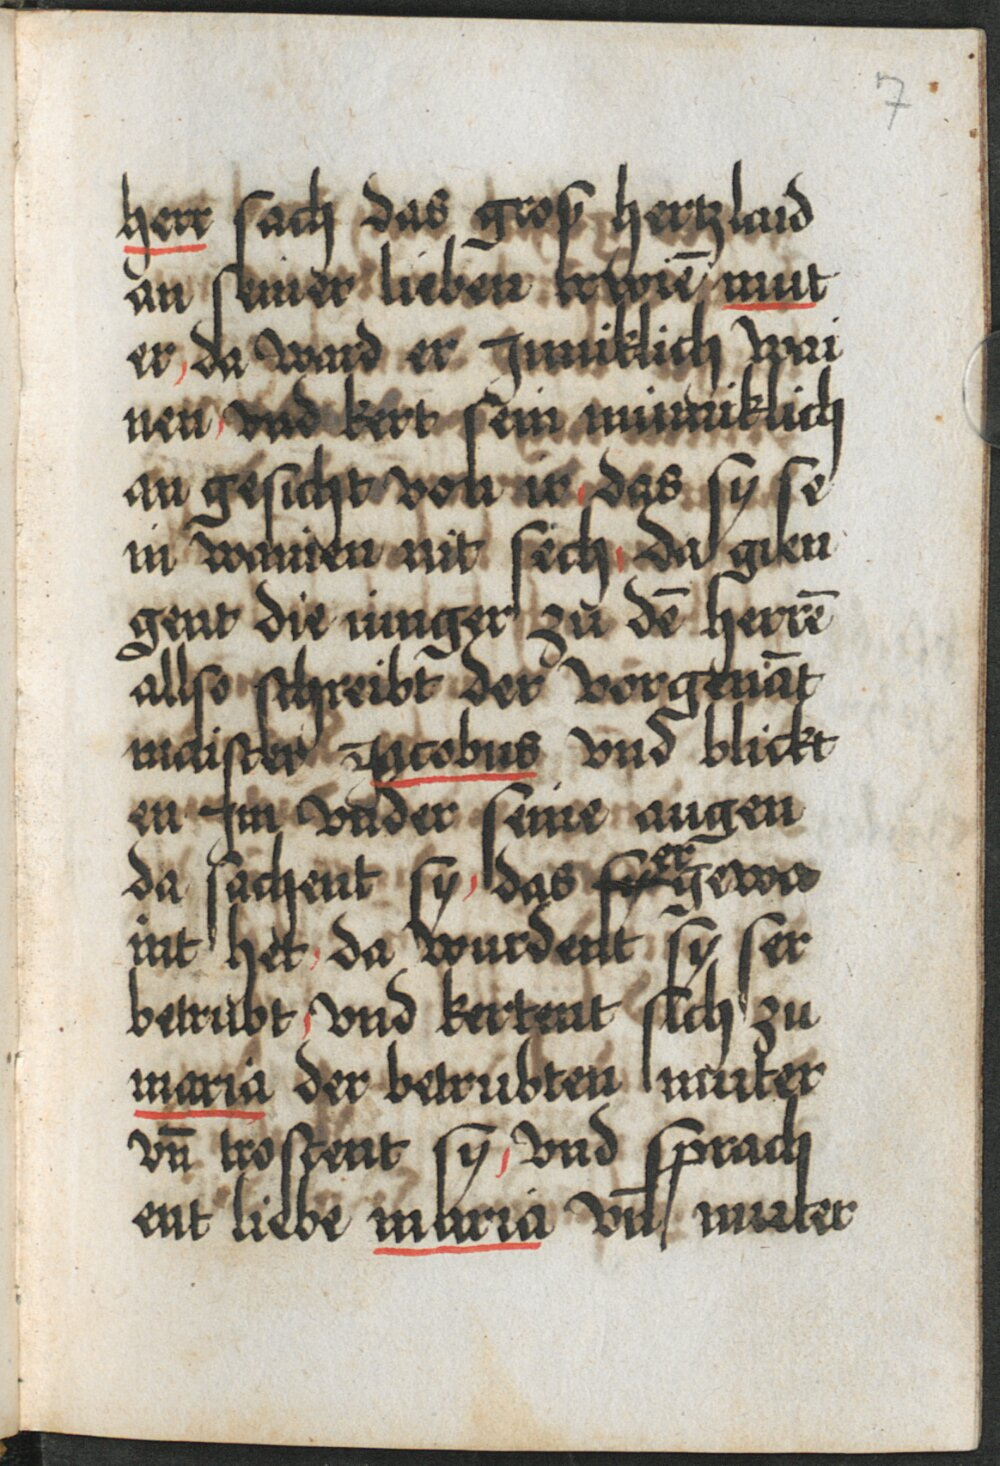 7
herr sach das groß hertzlaid
an seiner lieben trwiē mut
er, da ward er Jnniklich wai
nen, vnd kert sein minniklich
an gesicht von ir, das sÿ se
in wainen nit sech, da gien
gent die iunger zů dē herrē
allso schreibt der vorgenāt
maister Jacobus vnd blickt
en Jm vnder seine augen
da sachent sÿ, das er gewa
int het, da wurdent sÿ ser
betrübt, vnd kertent sich zu
maria der betrubten muter
vn̄ trostent sÿ, vnd sprach
ent liebe maria vn̄ muter